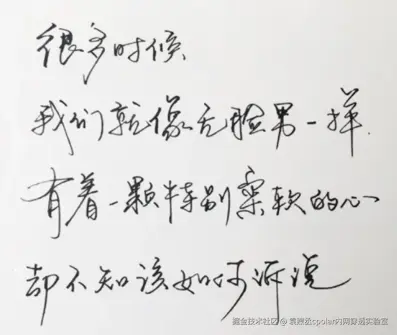 很多时候
我们就像无脸男一样.
有着一颗特别柔软的心
却不知该如何诉说
掘金技术社区 @ 袁袁袁cpolar内网穿透实验室